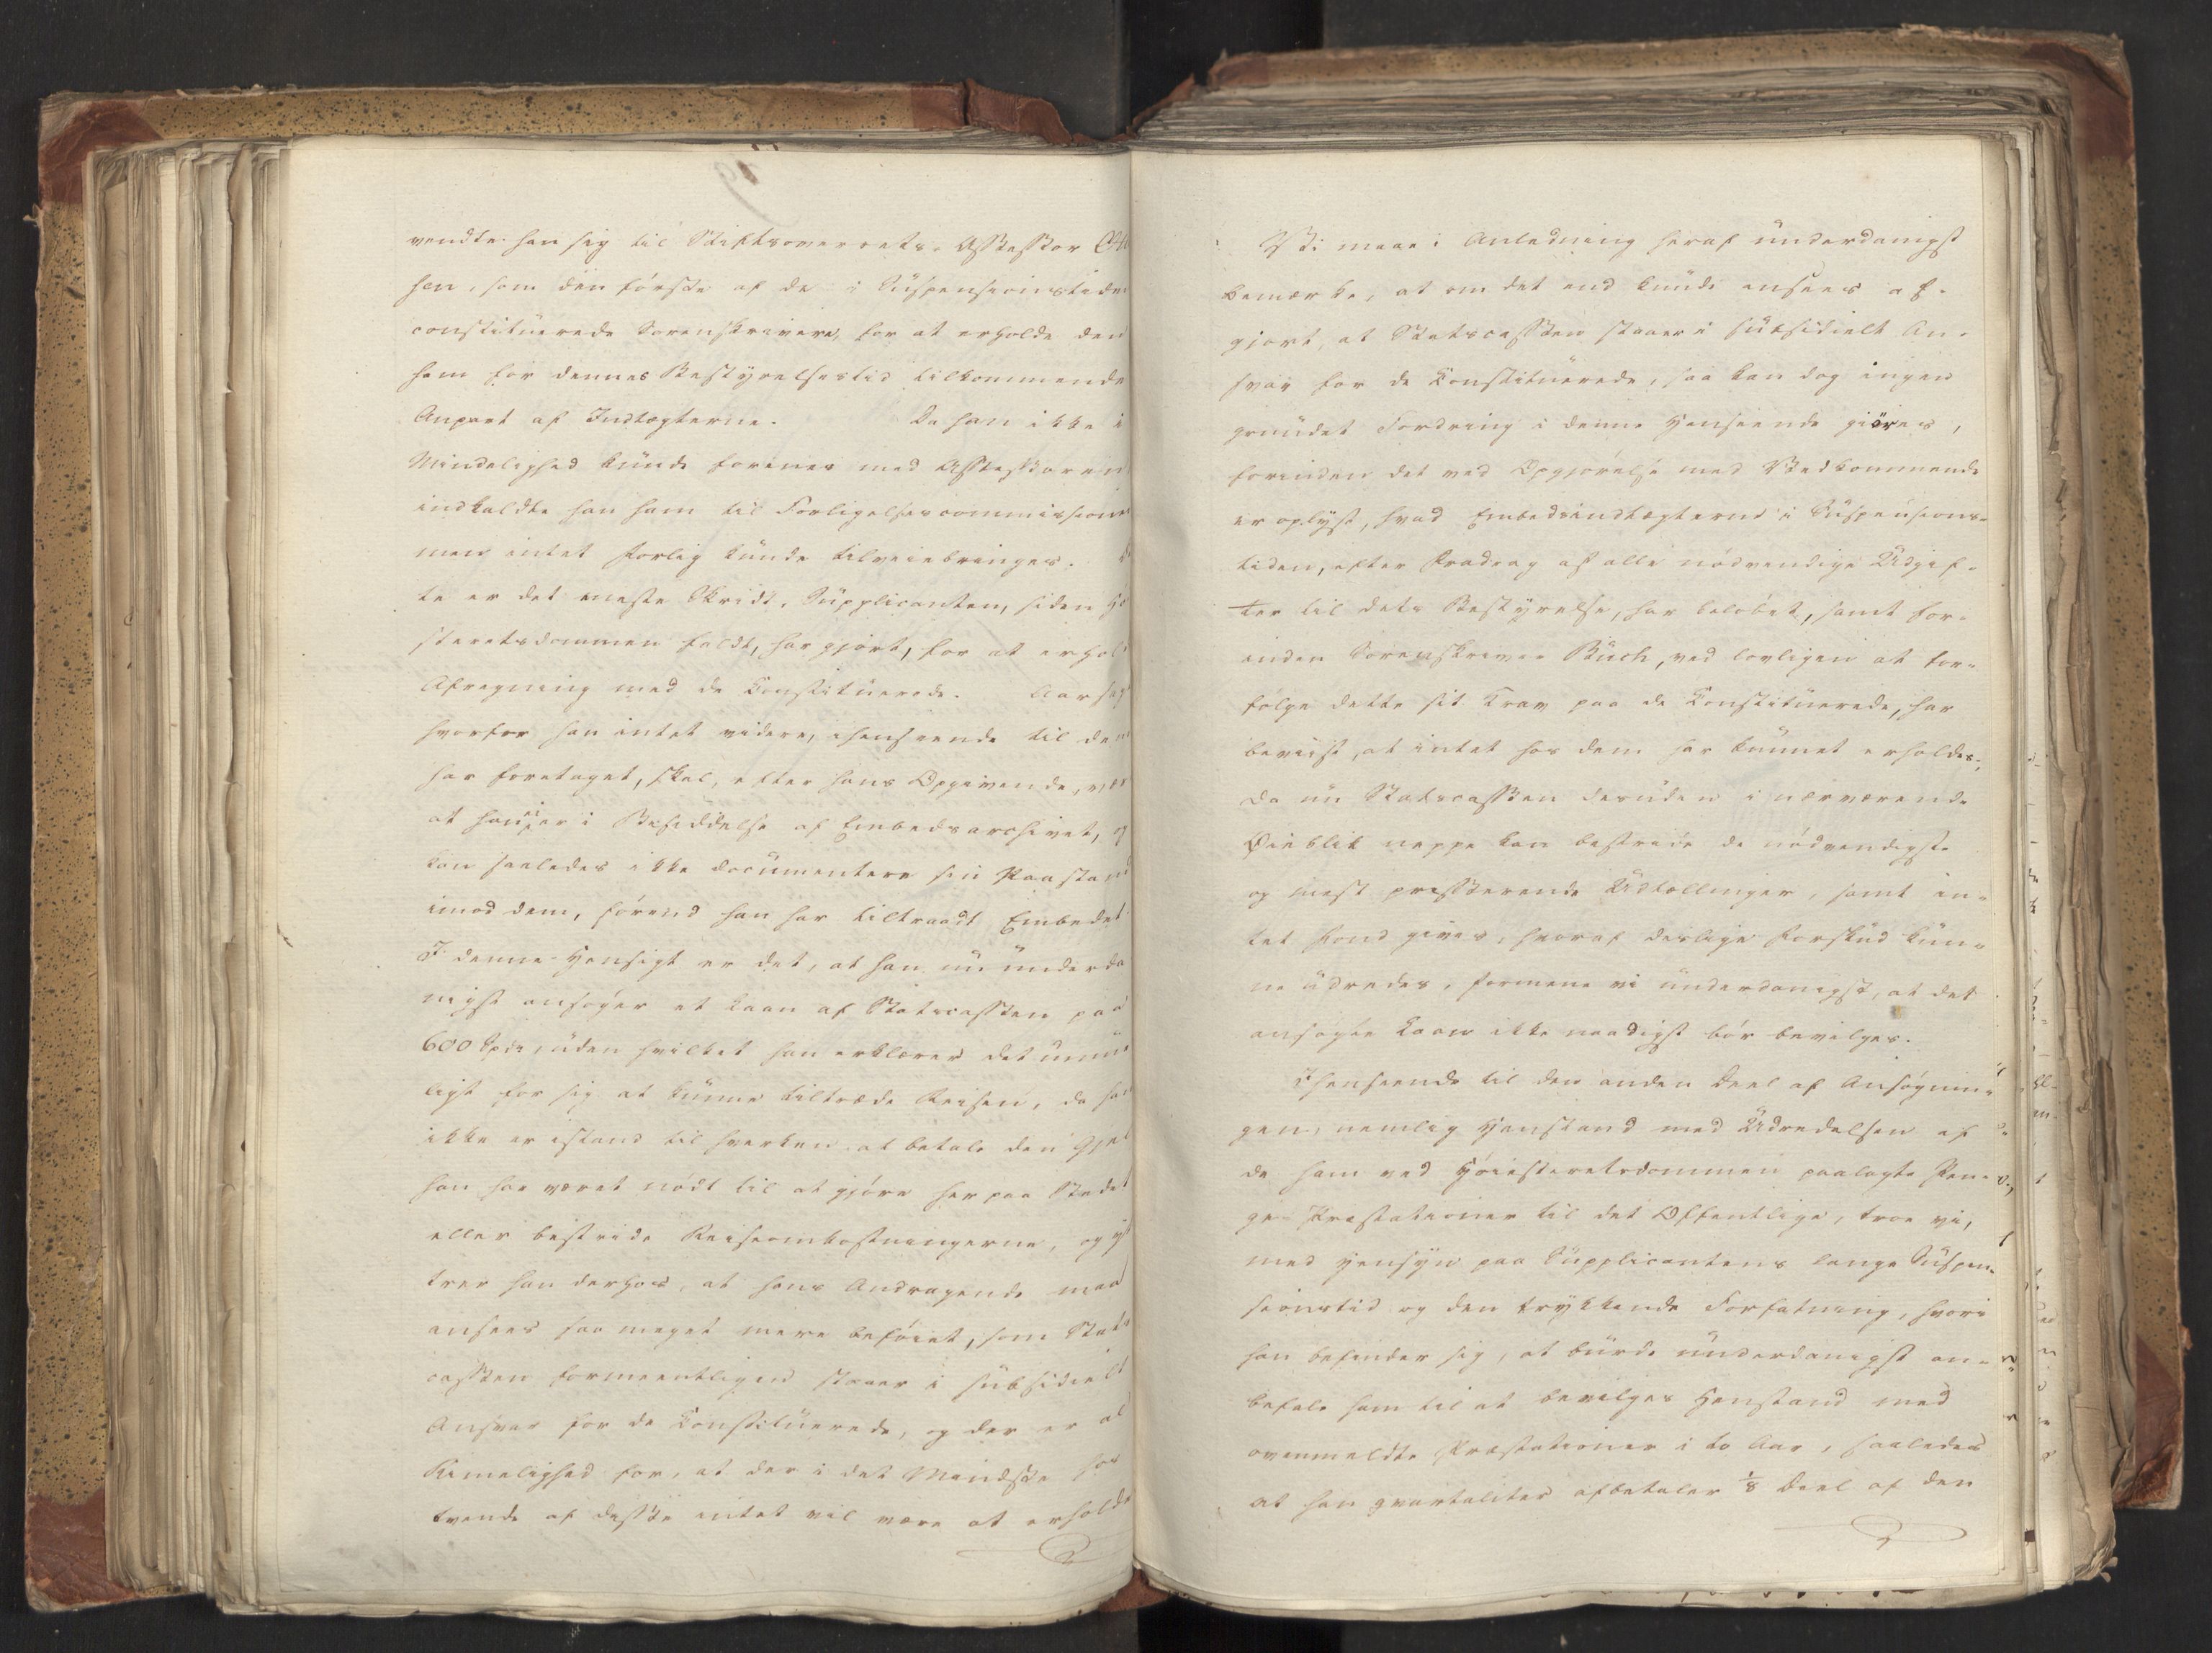 vendte han sig til Stiftsoverrets-Assessor
sen, som den første af de i Suspensionstiden
constituerede Sorenskrivere, for at erholde den
ham for dennes Bestyrelsestid tilkommende
Anpart af Indtægterne. Da han ikke i
Mindelighed kunde forenes med Assessoren
indkaldte han ham til Forligelsescommissionen
men intet Forlig kunde tilveiebringes.
te er det eneste Skridt, Supplicanten, siden Hø
steretsdommen faldt, har gjort, for at erhol
Afregning med de Constituerede. Aarsag
hvorfor han intet videre, ihenseende til dem
har foretaget, skal, efter hans Opgivende, vær
at han ei er i Besiddelse af Embedsarchivet, og
kan saaledes ikke documentere sin Paastand
imod dem, førend han har tiltraadt Embedet.
I denne Hensigt er det, at han nu underda
nigst ansøger et Laan af Statscassen paa
600 Spd, uden hvilket han erklærer det umu
ligt for sig at kunne tiltræde Reisen, da han
ikke er istand til hverken at betale den Gjel
han har været nødt til at gjøre her paa Stedet
eller bestride Reiseomkostningerne, og y
trer han derhos, at hans Andragende maa
ansees saa meget mere beføiet, som Stats
cassen formeentligen staaer i subsidielt
Ansvar for de Constituerede, og der er al
Rimelighed for, at der i det Mindste hos
tvende af disse intet vil være at erholde
Vi maae i Anledning heraf underdanigst
bemærke, at om det end kunde ansees af-
gjort, at Statscassen staaer i subsidielt An-
svar for de Constituerede, saa kan dog ingen
grundet Fordring i denne Henseende giøres,
forinden det ved Opgjørelse med Vedkommende
er oplyst, hvad Embedsindtægterne i Suspensions-
tiden, efter Fradrag af alle nødvendige Udgif-
ter til dets Bestyrelse, har beløbet, samt for-
inden Sorenskriver Buch, ved lovligen at for-
følge dette sit Krav paa de Constituerede, har
beviist, at intet hos dem har kunnet erholdes;
Da nu Statscassen desuden i nærværende
Øieblik neppe kan bestride de nødvendigste
og mest presserende Udtællinger, samt in-
tet Fond gives, hvoraf deslige Forskud kun-
ne udredes, formene vi underdanigst, at det
ansøgte Laan ikke naadigst bør bevilges.
Ihenseende til den anden Deel af Ansøgnin-
gen, nemlig Henstand med Udredelsen af
de ham ved Høiesteretsdommen paalagte Pen-
ge-Præstationer til det Offentlige, troe vi,
med Hensyn paa Supplicantens lange Suspen-
sionstid og den trykkende Forfatning, hvori
han befinder sig, at burde underdanigst an-
befale ham til at bevilges Henstand med
ovenmeldte Præstationer i to Aar, saaledes
at han qvartaliter afbetaler 1/8 Deel af den